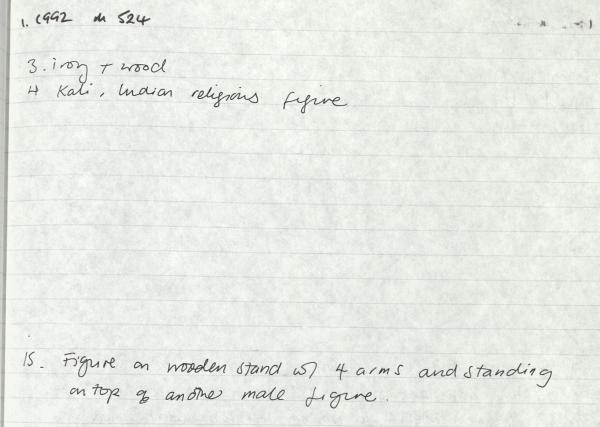 1. 1992 M 524
3. iron + wood
4 Kali, Indian religious figure
15. Figure on wooden stand w/ 4 arms and standing
on top of another male figure.